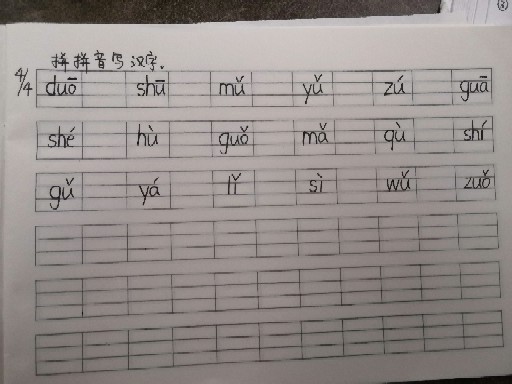 拼拼音写汉字.
4/4
duō shū mǔ yǔ zú guā
shé hù guǒ mǎ qù shí
gǔ yá lǐ sì wǔ zuǒ